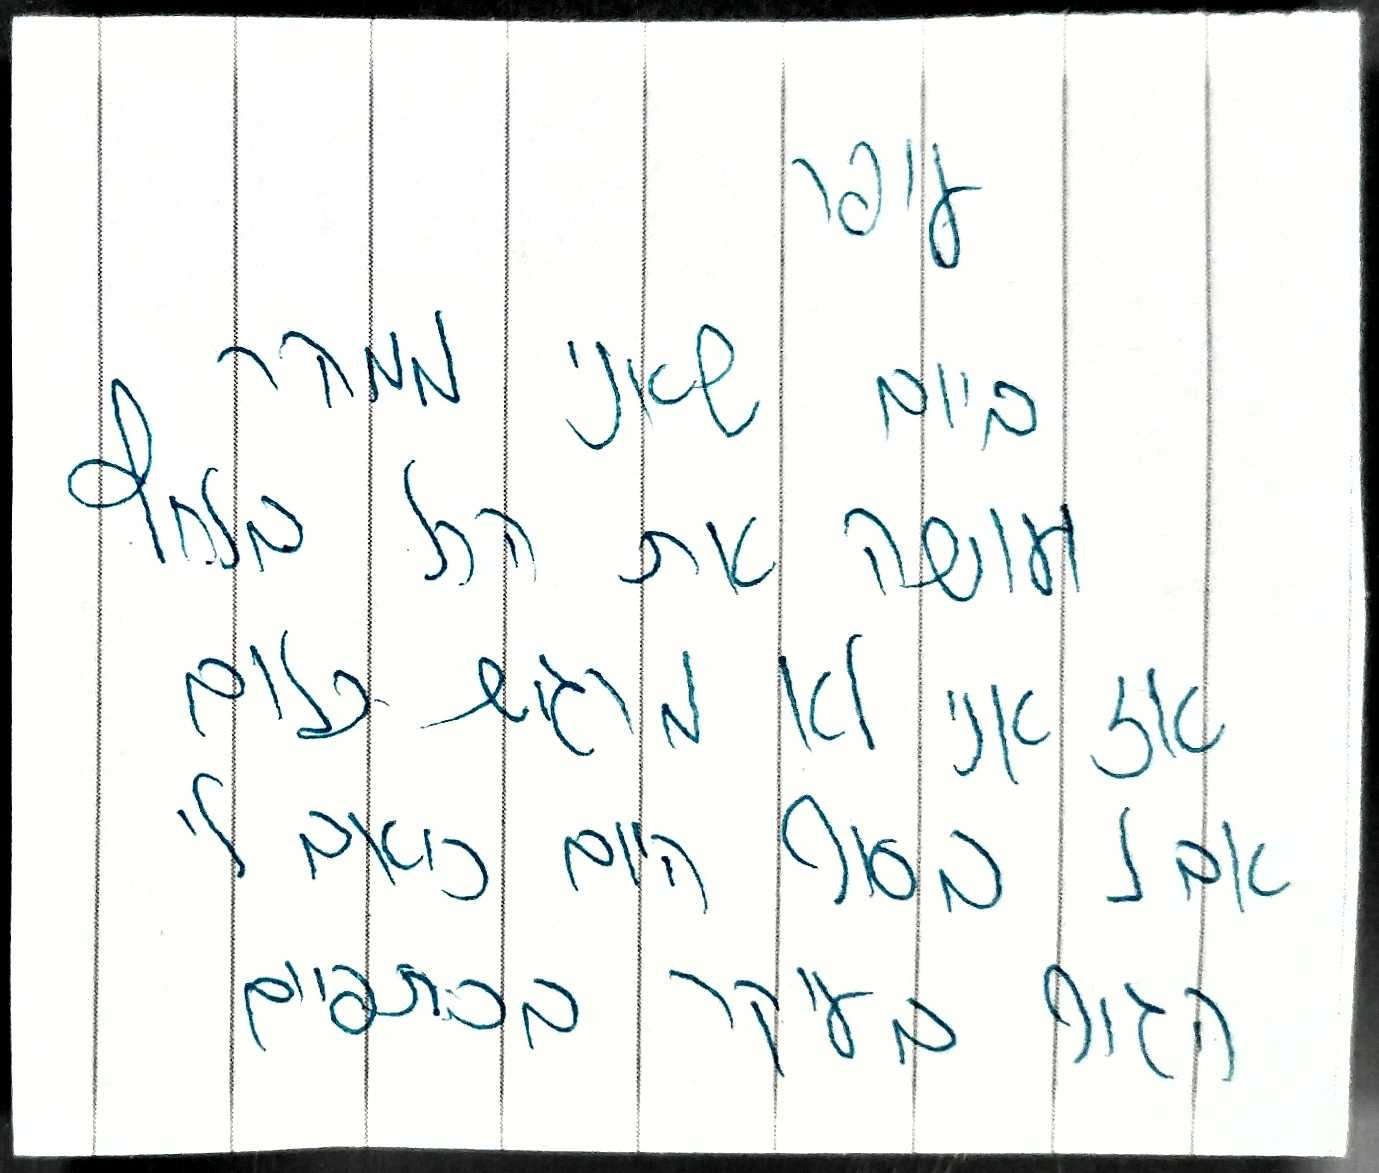 עיפר
ביום שאני ממהר
ועושה את הכל בלחץ
אז אני לא מרגיש כלום
אבל בסוף היום כואב לי
הגוף בעיקר בכתפיים